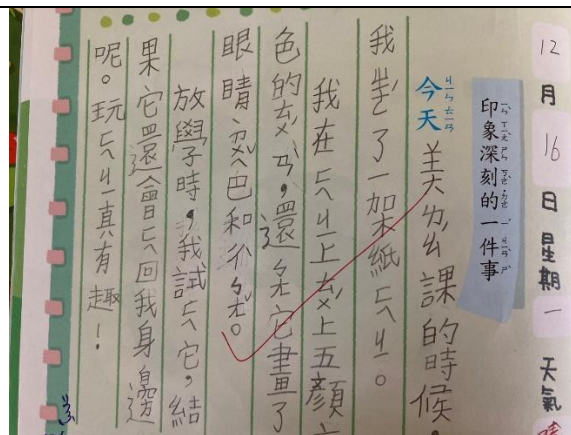 12月16日星期一 天氣
印象深刻的一件事
今天美ㄌㄠˊ課的時候,
我了一架紙ㄈㄟㄐㄧ。
我在ㄈㄟㄐㄧ上上五顏
色的,還ㄅㄤ它畫了
眼睛、ㄗㄨㄟˇ巴和ㄔˋㄅㄤˇ。
放學時,我試ㄈㄟ它,結
果它還會ㄈㄟ回我身邊
呢。玩ㄈㄟㄐㄧ真有趣!